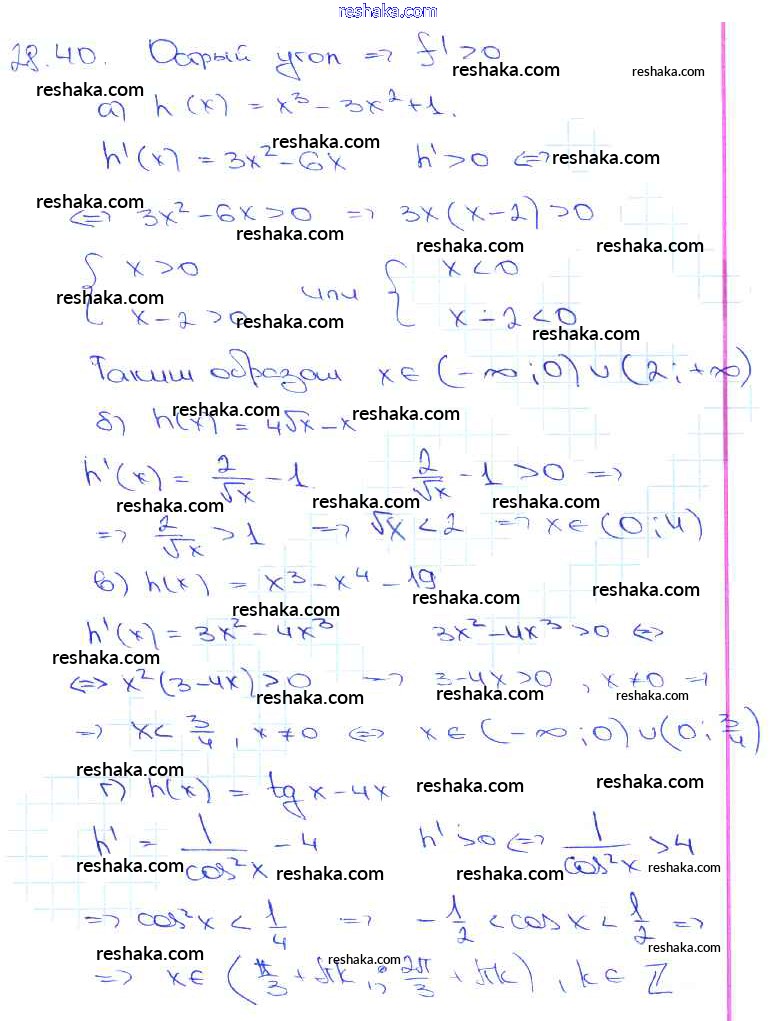 reshaka.com
28.40. Острый угол => f' > 0
reshaka.com reshaka.com
а) h(x) = x³ - 3x² + 1.
reshaka.com
h'(x) = 3x² - 6x h' > 0 <=>
reshaka.com
reshaka.com
<=> 3x² - 6x > 0 => 3x(x - 2) > 0
reshaka.com reshaka.com reshaka.com
{ x > 0 или { x < 0
reshaka.com
x - 2 > 0 x - 2 < 0
reshaka.com
Таким образом x ∈ (-∞; 0) ∪ (2; +∞)
reshaka.com reshaka.com
б) h(x) = 4√x - x
h'(x) = 2/√x - 1. 2/√x - 1 > 0 =>
reshaka.com reshaka.com reshaka.com
=> 2/√x > 1 => √x < 2 => x ∈ (0; 4)
в) h(x) = x³ - x⁴ - 19
reshaka.com reshaka.com
h'(x) = 3x² - 4x³ 3x² - 4x³ > 0 <=>
reshaka.com
<=> x²(3 - 4x) > 0 => 3 - 4x > 0, x ≠ 0 =>
reshaka.com reshaka.com reshaka.com
=> x < 3/4, x ≠ 0 <=> x ∈ (-∞; 0) ∪ (0; 3/4)
reshaka.com
г) h(x) = tg x - 4x
reshaka.com reshaka.com
h' = 1/cos²x - 4 h' > 0 <=> 1/cos²x > 4
reshaka.com reshaka.com reshaka.com reshaka.com
=> cos²x < 1/4 => -1/2 < cos x < 1/2 =>
reshaka.com reshaka.com reshaka.com reshaka.com
=> x ∈ (π/3 + πk; 2π/3 + πk), k ∈ Z